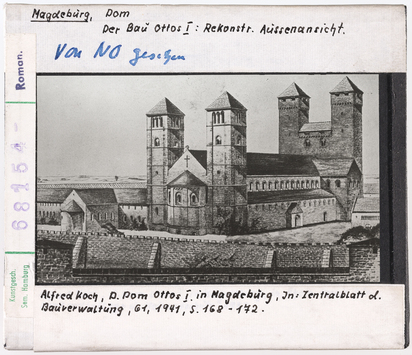 Magdeburg, Dom
Der Bau Ottos I: Rekonstr. Aussenansicht.
Von NO gesehen
Roman.
68154
Kunstgesch.
Sem. Hamburg
Alfred Koch, D. Dom Ottos I. in Magdeburg, In: Zentralblatt d.
Bauverwaltung, 61, 1941, S. 168-172.